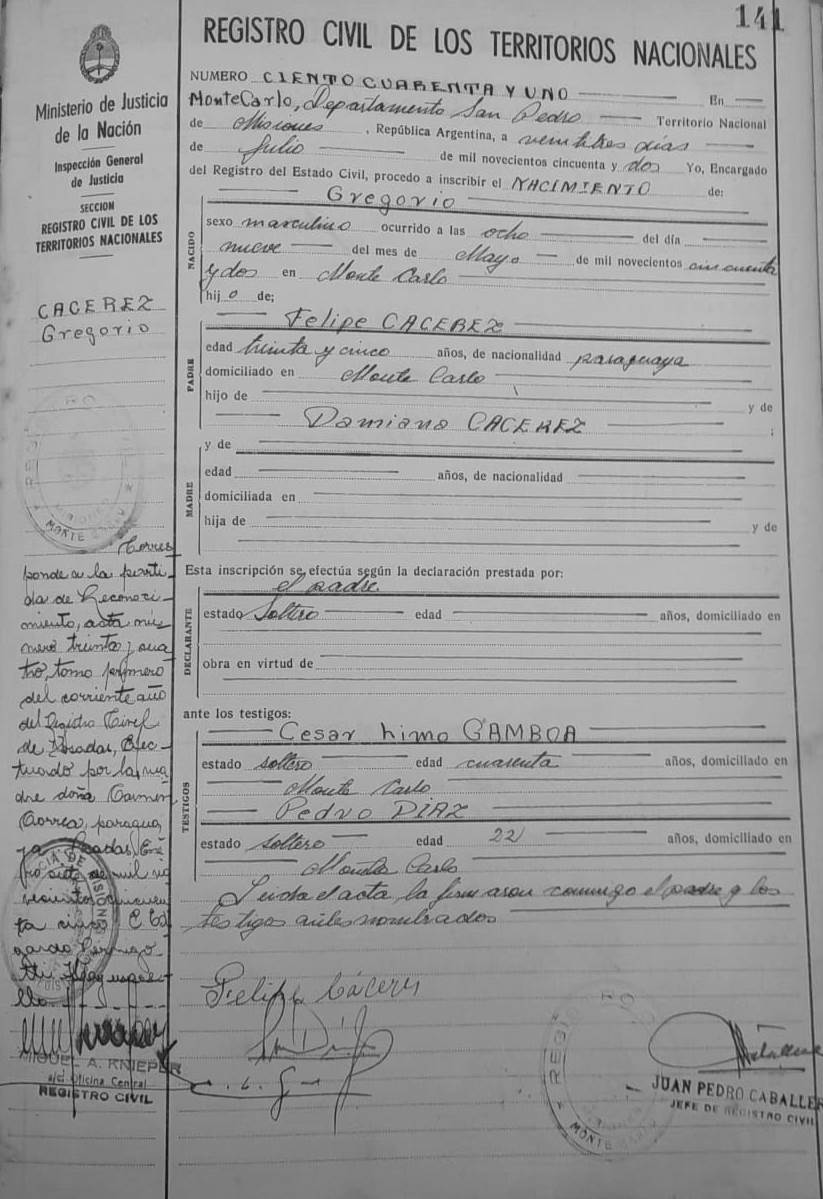 141
REGISTRO CIVIL DE LOS TERRITORIOS NACIONALES
Ministerio de Justicia
de la Nación
Inspección General
de Justicia
SECCION
REGISTRO CIVIL DE LOS
TERRITORIOS NACIONALES
CACEREZ
Gregorio
NUMERO CIENTO CUARENTA Y UNO En
MonteCarlo, Departamento San Pedro Territorio Nacional
de Misiones, República Argentina, a veintitres días
de Julio de mil novecientos cincuenta y dos Yo, Encargado
del Registro del Estado Civil, procedo a inscribir el NACIMIENTO de:
Gregorio
NACIDO
sexo masculino ocurrido a las ocho del día
nueve del mes de Mayo de mil novecientos cincuenta
y dos en Monte Carlo
hijo de;
Felipe CACEREZ
PADRE
edad treinta y cinco años, de nacionalidad paraguaya
domiciliado en Monte Carlo
hijo de y de
Damiana CACEREZ ;
MADRE
y de
edad años, de nacionalidad
domiciliada en
hija de y de
Esta inscripción se efectúa según la declaración prestada por:
el padre.
DECLARANTE
estado Soltero edad años, domiciliado en
obra en virtud de
ante los testigos:
Cesar Limo GAMBOA
TESTIGOS
estado soltero edad cuarenta años, domiciliado en
Monte Carlo
Pedro DIAZ
estado soltero edad 22 años, domiciliado en
Monte Carlo
Leida el acta la firmaron conmigo el padre y los
testigos antes nombrados
Corres
ponde a la parti-
da de Reconoci-
miento, acta nú-
mero treinta y cua
tro, tomo primero
del corriente año
del Registro Civil
de Posadas, Efec-
tuando por la ma
dre doña Carmen
Correa, paragua
ya Posadas, Ene
ro siete de mil no
vecientos cincuen
ta cinco
REGISTRO
MISIONES
MONTE CARLO
Felipe Cáceres
MIGUEL A. KNIEPER
a/c Oficina Central
REGISTRO CIVIL
REGISTRO
MONTE CARLO
JUAN PEDRO CABALLER
JEFE DE REGISTRO CIVIL